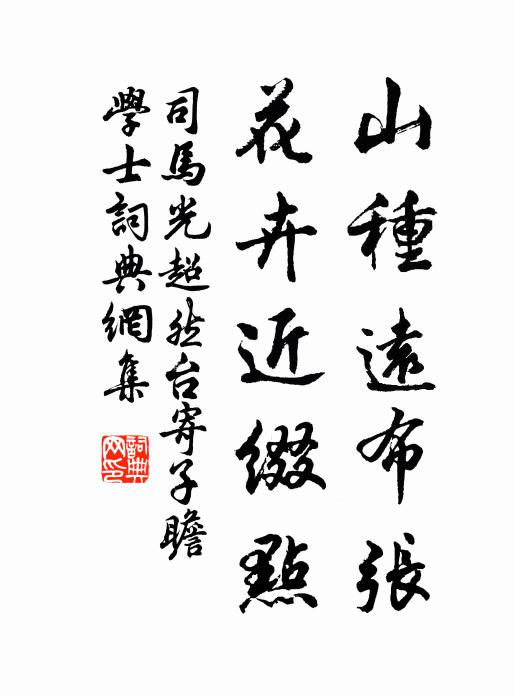 山種遠布張
花卉近綴點
司馬光超然台寄子瞻
學士詞典網集
詞典网印